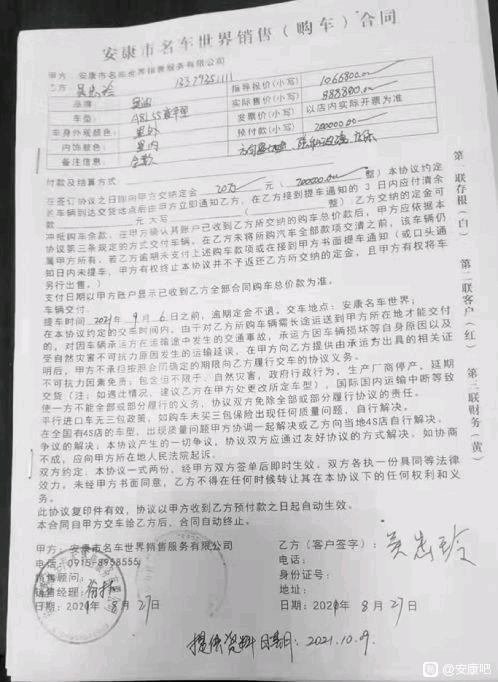 安康市名车世界销售（购车）合同
甲方：安康市名车世界销售服务有限公司
乙方
品牌：
指导报价(小写) 1066800.00
车型：
实际售价(小写) 888800.00
车身外观颜色：
发票价(小写) 以店内实际开票为准
内饰颜色：
预付款(小写) 200000.00
备注信息： 全款
付款及结算方式
在签订协议之日即向甲方交纳定金 20万 元（ 200000.00 整）本协议约定
长车辆到达交货地点后由甲方立即通知乙方，在乙方接到提车通知的 3 日内应付清余
款 元大写（ 整）：乙方交纳的定金可
冲抵购车余款，在甲方确认其账户已收到乙方所交纳的购车总价款后，甲方应依据本
协议第三条规定的方式交付车辆。在乙方未将所购汽车全部款项交清之前，该车辆仍
属甲方所有，若乙方逾期未支付上述购车款项或在接到甲方书面提车通知（或口头通
知日内未提车，甲方有权终止本协议并不予返还乙方所交纳的定金，且甲方有权将车
另行出售。）
支付日期以甲方账户显示已收到乙方全部合同购车总价款为准。
车辆交付
提车时间：2021年 9 月 6 日之前，逾期定金不退。交车地点：安康名车世界；
在本协议约定的交车时间内，由于对乙方所购车辆需长途运送到甲方所在地才能交付
的，对因车辆承运方在运输途中发生的交通事故，承运方因车辆损坏等自身原因以及
受自然灾害不可抗力原因发生的运输延误，在甲方向乙方提供由承运方出具的相关证
明后，甲方不承担按照合同确定的期限向乙方履行交车的协议义务。
不可抗力因素免责：包含但不限于，自然灾害，政府行政行为，生产厂商停产，延期
交货（注：如遇出情况，建议乙方在甲方处更改所定车型），国际国内运输中断等致
使一方不能全部或部分履行的义务，协议双方免除全部或部分履行协议的责任。
平行进口车无三包政策，如购车未买三包保险出现任何质量问题，自行解决。
在全国有4S店的车型，出现质量问题甲方协调一起解决或乙方向当地4S店自行解决。
争议的解决：本协议产生的一切争议，协议双方应通过友好协议的方式解决。如协商
不成，应向甲方所在地人民法院起诉。
双方约定，本协议一式两份，经甲方双方签单后即时生效。双方各执一份具同等法律
效力。未经甲方书面同意，乙方不得在任何时候转让其在本协议下的任何权利和义
务。
此协议复印件有效，协议以甲方收到乙方预付款之日起自动生效。
本合同自甲方交车给乙方后，合同自动终止。
第一联存根（白）
第二联客户（红）
第三联财务（黄）
甲方：安康市名车世界销售服务有限公司
电话：0915-8958555
销售顾问：
销售经理：
日期：2021年 8 月 27日
乙方（客户签字）：吴忠玲
电话：
身份证号：
地址：
日期：2021年 8 月 27日
提供资料日期：2021.10.9.
@安康吧